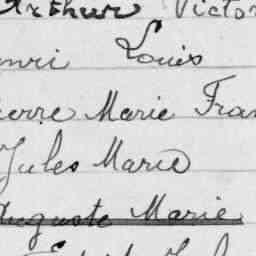 Arthur Victor
Henri Louis
Pierre Marie Fran
Jules Marie
Auguste Marie